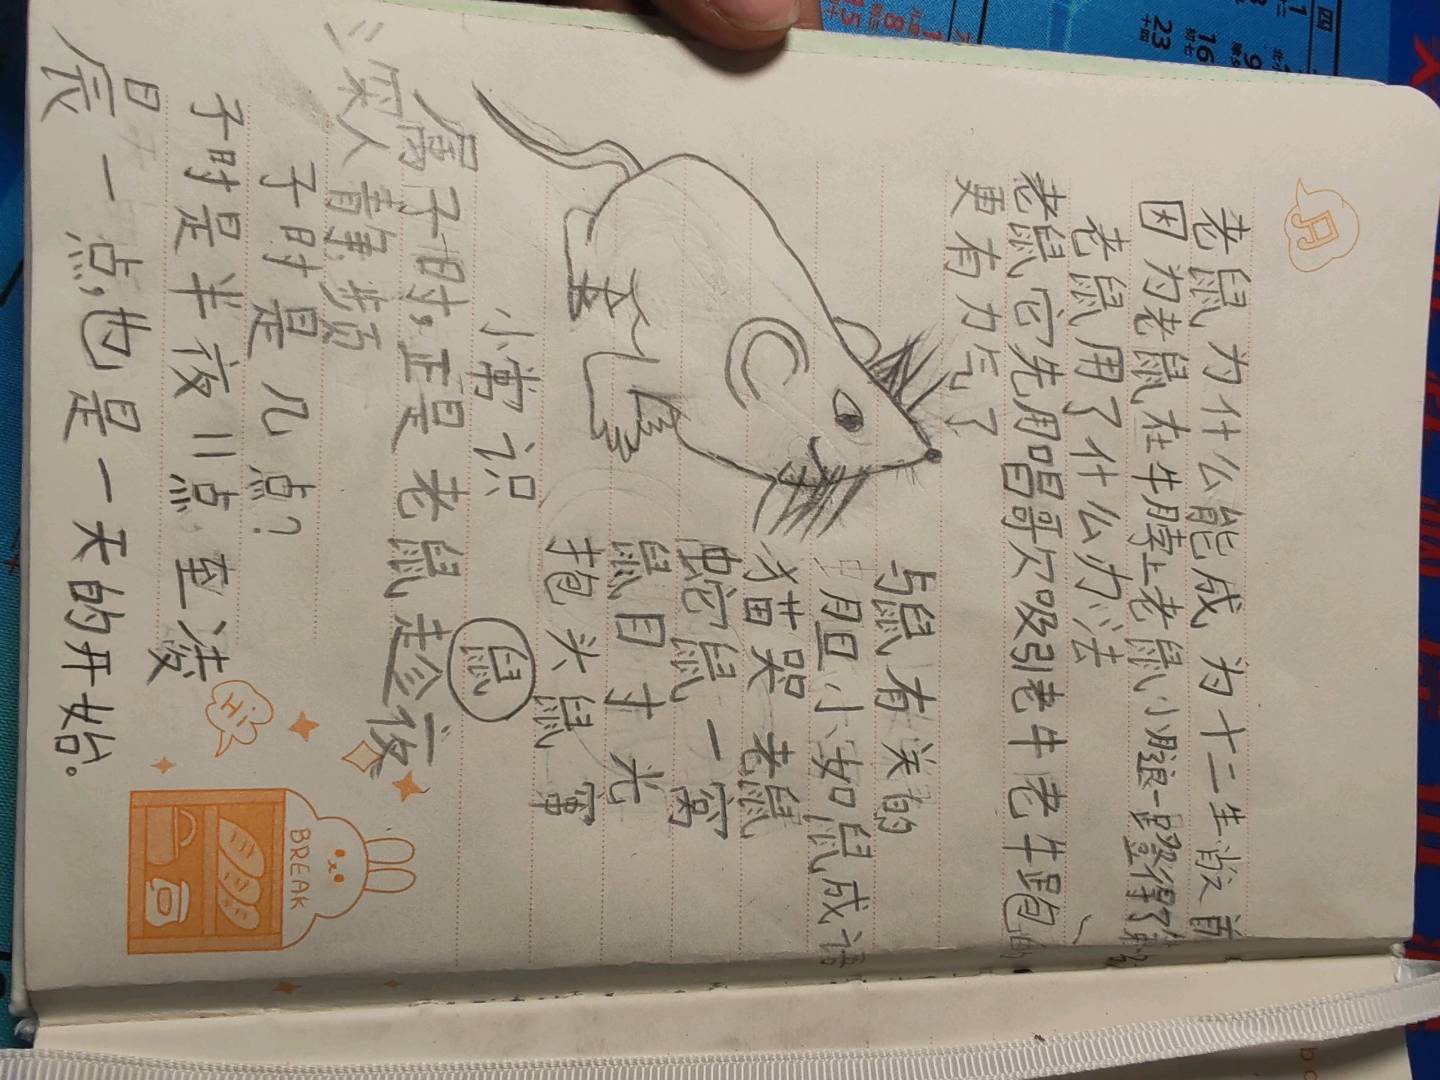 月
老鼠为什么能成为十二生肖首
因为老鼠在牛脖上老鼠小腿一蹬得了
老鼠用了什么办法
老鼠它先用唱哥欠吸引老牛老牛
更有力气了
与鼠有关的
胆小如鼠成语
猫哭老鼠
蛇鼠一窝
鼠目寸光
抱头鼠窜
小常识
鼠
属子时,正是老鼠趁夜
深人青静步频
子时是几点?
子时是半夜11点,至凌
晨一点,也是一天的开始。
Hi
BREAK
四
16
初七
23
十四
9
8